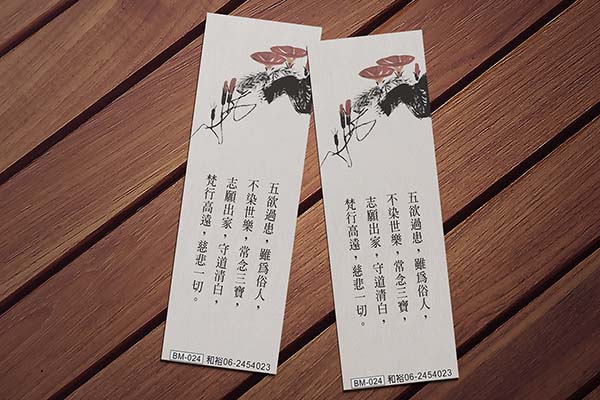 五欲過患，雖爲俗人，
不染世樂，常念三寶，
志願出家，守道清白，
梵行高遠，慈悲一切。
BM-024 和裕06-2454023
五欲過患，雖爲俗人，
不染世樂，常念三寶，
志願出家，守道清白，
梵行高遠，慈悲一切。
BM-024 和裕06-2454023